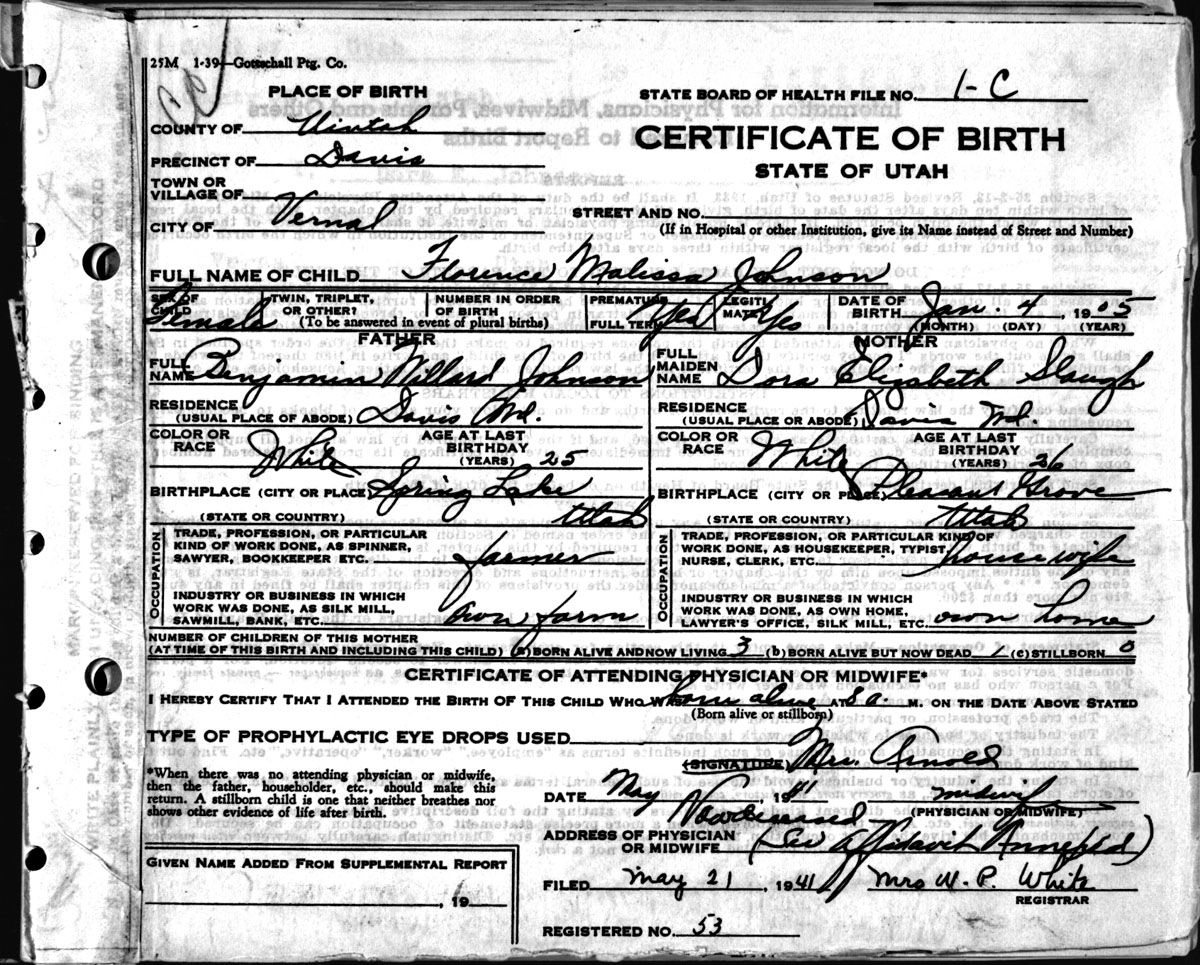 25M 1-39—Gottschall Ptg. Co.
PLACE OF BIRTH
COUNTY OF Uintah
PRECINCT OF Davis
TOWN OR
VILLAGE OF
CITY OF Vernal
STATE BOARD OF HEALTH FILE NO. 1-C
CERTIFICATE OF BIRTH
STATE OF UTAH
STREET AND NO.
(If in Hospital or other Institution, give its Name instead of Street and Number)
FULL NAME OF CHILD Florence Malissa Johnson
SEX OF CHILD Female
TWIN, TRIPLET, OR OTHER?
NUMBER IN ORDER OF BIRTH
(To be answered in event of plural births)
PREMATURE
FULL TERM Yes
LEGITIMATE? Yes
DATE OF BIRTH Jan. 4, 1905
(MONTH) (DAY) (YEAR)
FATHER
FULL NAME Benjamin Willard Johnson
RESIDENCE
(USUAL PLACE OF ABODE) Davis Wd.
COLOR OR RACE White
AGE AT LAST BIRTHDAY (YEARS) 25
BIRTHPLACE (CITY OR PLACE) Spring Lake
(STATE OR COUNTRY) Utah
OCCUPATION
TRADE, PROFESSION, OR PARTICULAR
KIND OF WORK DONE, AS SPINNER,
SAWYER, BOOKKEEPER ETC. farmer
INDUSTRY OR BUSINESS IN WHICH
WORK WAS DONE, AS SILK MILL,
SAWMILL, BANK, ETC. own farm
MOTHER
FULL MAIDEN NAME Dora Elizabeth Slaugh
RESIDENCE
(USUAL PLACE OR ABODE) Davis Wd.
COLOR OR RACE White
AGE AT LAST BIRTHDAY (YEARS) 26
BIRTHPLACE (CITY OR PLACE) Pleasant Grove
(STATE OR COUNTRY) Utah
OCCUPATION
TRADE, PROFESSION, OR PARTICULAR KIND OF
WORK DONE, AS HOUSEKEEPER, TYPIST,
NURSE, CLERK, ETC. housewife
INDUSTRY OR BUSINESS IN WHICH
WORK WAS DONE, AS OWN HOME,
LAWYER'S OFFICE, SILK MILL, ETC. own home
NUMBER OF CHILDREN OF THIS MOTHER
(AT TIME OF THIS BIRTH AND INCLUDING THIS CHILD) (a) BORN ALIVE AND NOW LIVING 3 (b) BORN ALIVE BUT NOW DEAD 1 (c) STILLBORN 0
CERTIFICATE OF ATTENDING PHYSICIAN OR MIDWIFE*
I HEREBY CERTIFY THAT I ATTENDED THE BIRTH OF THIS CHILD WHO WAS born alive AT 8 a. M. ON THE DATE ABOVE STATED
(Born alive or stillborn)
TYPE OF PROPHYLACTIC EYE DROPS USED
*When there was no attending physician or midwife,
then the father, householder, etc., should make this
return. A stillborn child is one that neither breathes nor
shows other evidence of life after birth.
(SIGNATURE) Mrs. Arnold
DATE May, 1941 midwife
(PHYSICIAN OR MIDWIFE)
Now deceased
ADDRESS OF PHYSICIAN
OR MIDWIFE (See Affidavit Annexed)
GIVEN NAME ADDED FROM SUPPLEMENTAL REPORT
, 19
FILED May 21, 1941 Mrs W. P. White
REGISTRAR
REGISTERED NO. 53